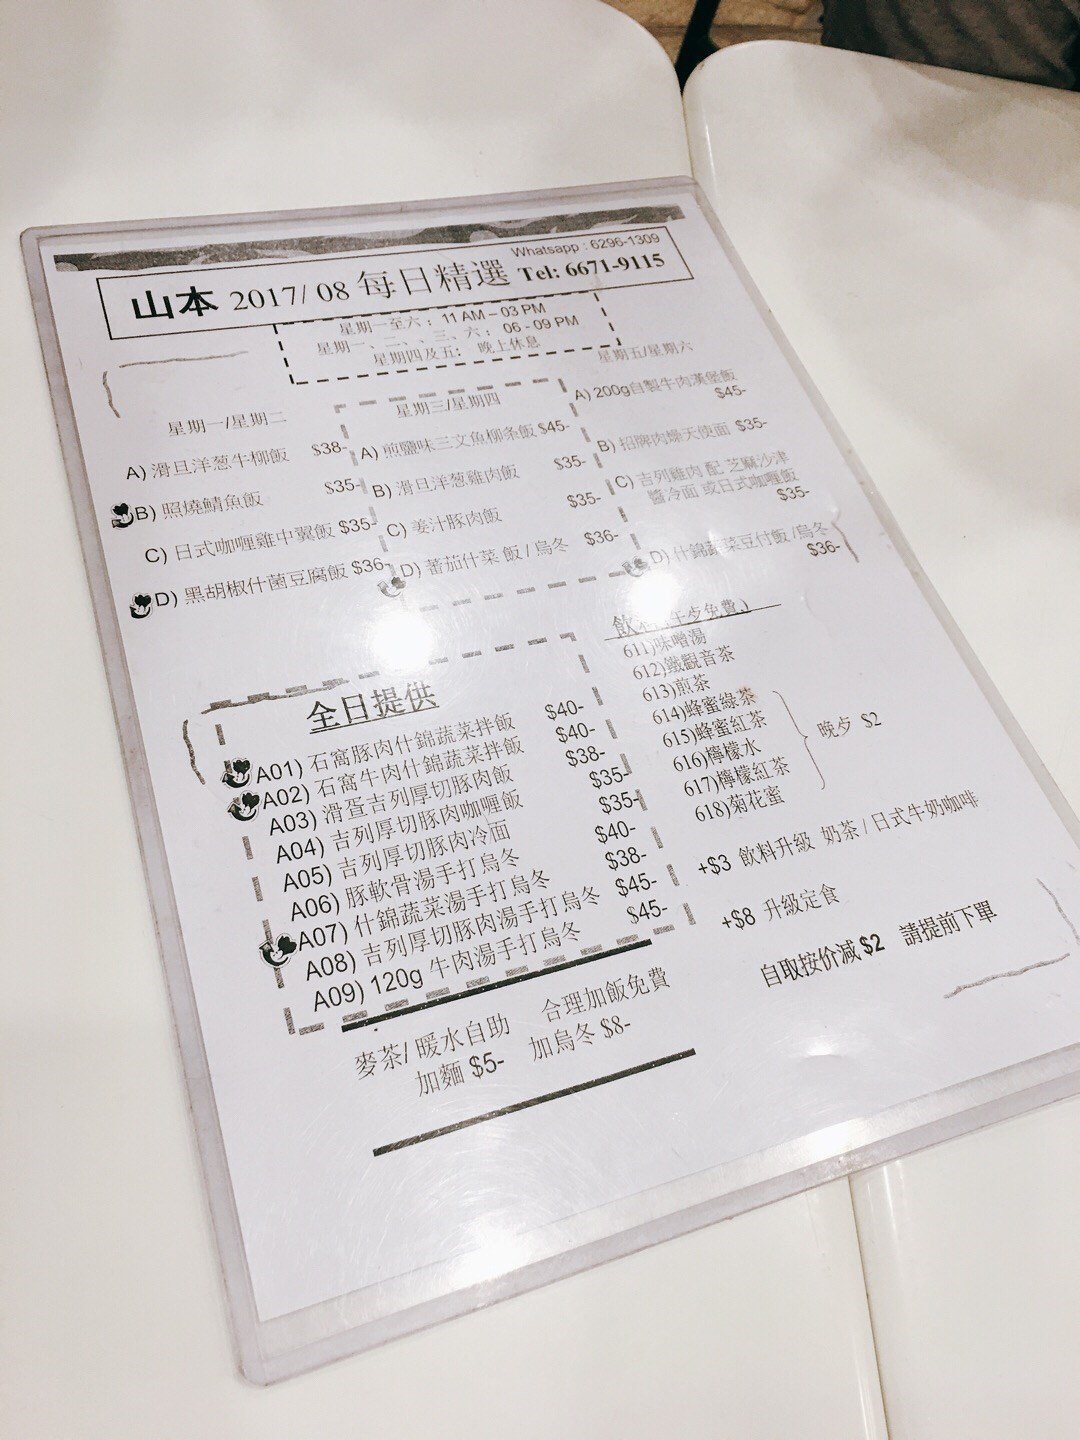 Whatsapp : 6296-1309
山本 2017/ 08 每日精選 Tel: 6671-9115
星期一至六： 11 AM – 03 PM
星期一、二、、三、六： 06 - 09 PM
星期四及五： 晚上休息
星期一/星期二
A) 滑旦洋葱牛柳飯 $38-
B) 照燒鯖魚飯 $35-
C) 日式咖喱雞中翼飯 $35-
D) 黑胡椒什菌豆腐飯 $36-
星期三/星期四
A) 煎鹽味三文魚柳条飯 $45-
B) 滑旦洋葱雞肉飯 $35-
C) 姜汁豚肉飯 $35-
D) 蕃茄什菜 飯 / 烏冬 $36-
星期五/星期六
A) 200g自製牛肉漢堡飯
$45-
B) 招牌肉燥天使面 $35-
C) 吉列雞肉 配 芝麻沙津
醬冷面 或日式咖喱飯
$35-
D) 什錦蔬菜豆付飯 /烏冬
$36-
全日提供
A01) 石窩豚肉什錦蔬菜拌飯 $40-
A02) 石窩牛肉什錦蔬菜拌飯 $40-
A03) 滑蛋吉列厚切豚肉飯 $38-
A04) 吉列厚切豚肉咖喱飯 $35-
A05) 吉列厚切豚肉冷面 $35-
A06) 豚軟骨湯手打烏冬 $40-
A07) 什錦蔬菜湯手打烏冬 $38-
A08) 吉列厚切豚肉湯手打烏冬 $45-
A09) 120g 牛肉湯手打烏冬 $45-
麥茶/ 暖水自助 合理加飯免費
加麵 $5- 加烏冬 $8-
飲料 午夕免費
611)味噌湯
612)鐵觀音茶
613)煎茶
614)蜂蜜綠茶
615)蜂蜜紅茶
616)檸檬水
617)檸檬紅茶
618)菊花蜜
晚夕 $2
+$3 飲料升級 奶茶 / 日式牛奶咖啡
+$8 升級定食
自取按价減 $2 請提前下單